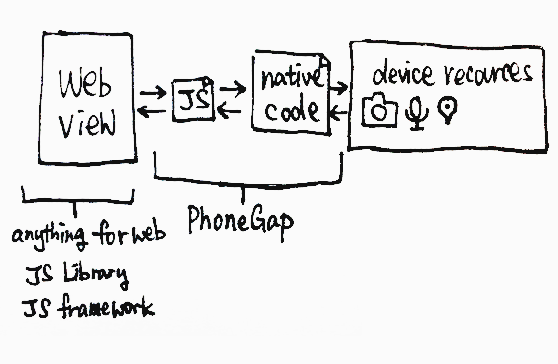 Web
View
JS
native
code
device recources
PhoneGap
anything for web
JS Library
JS framework